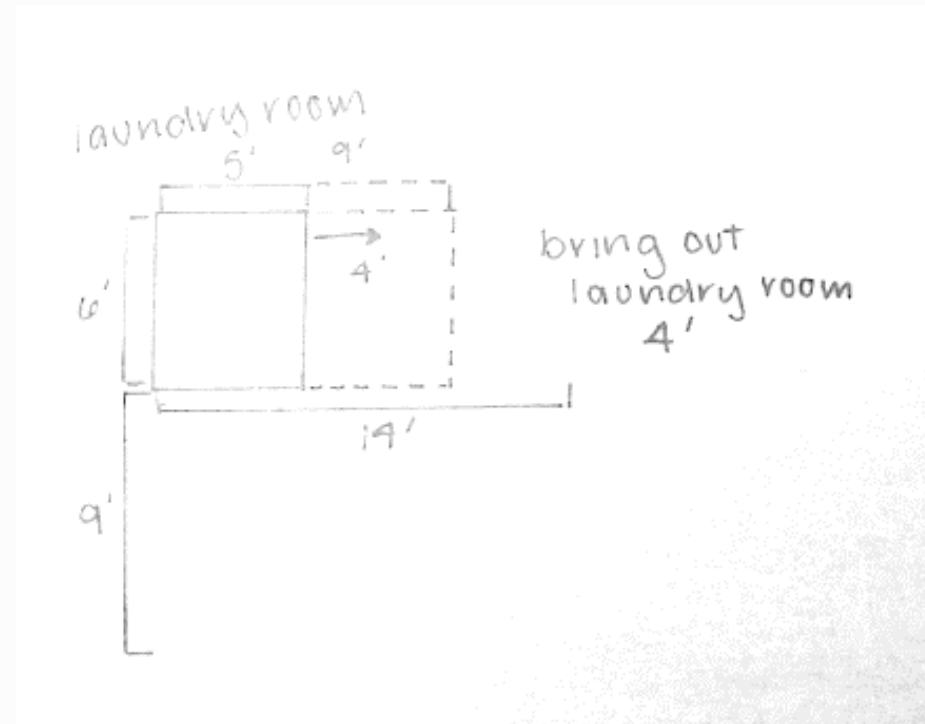 laundry room
5' 9'
4'
6'
bring out
laundry room
4'
14'
9'